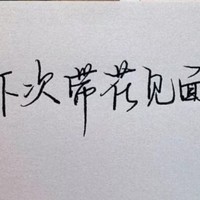 下次带花见面